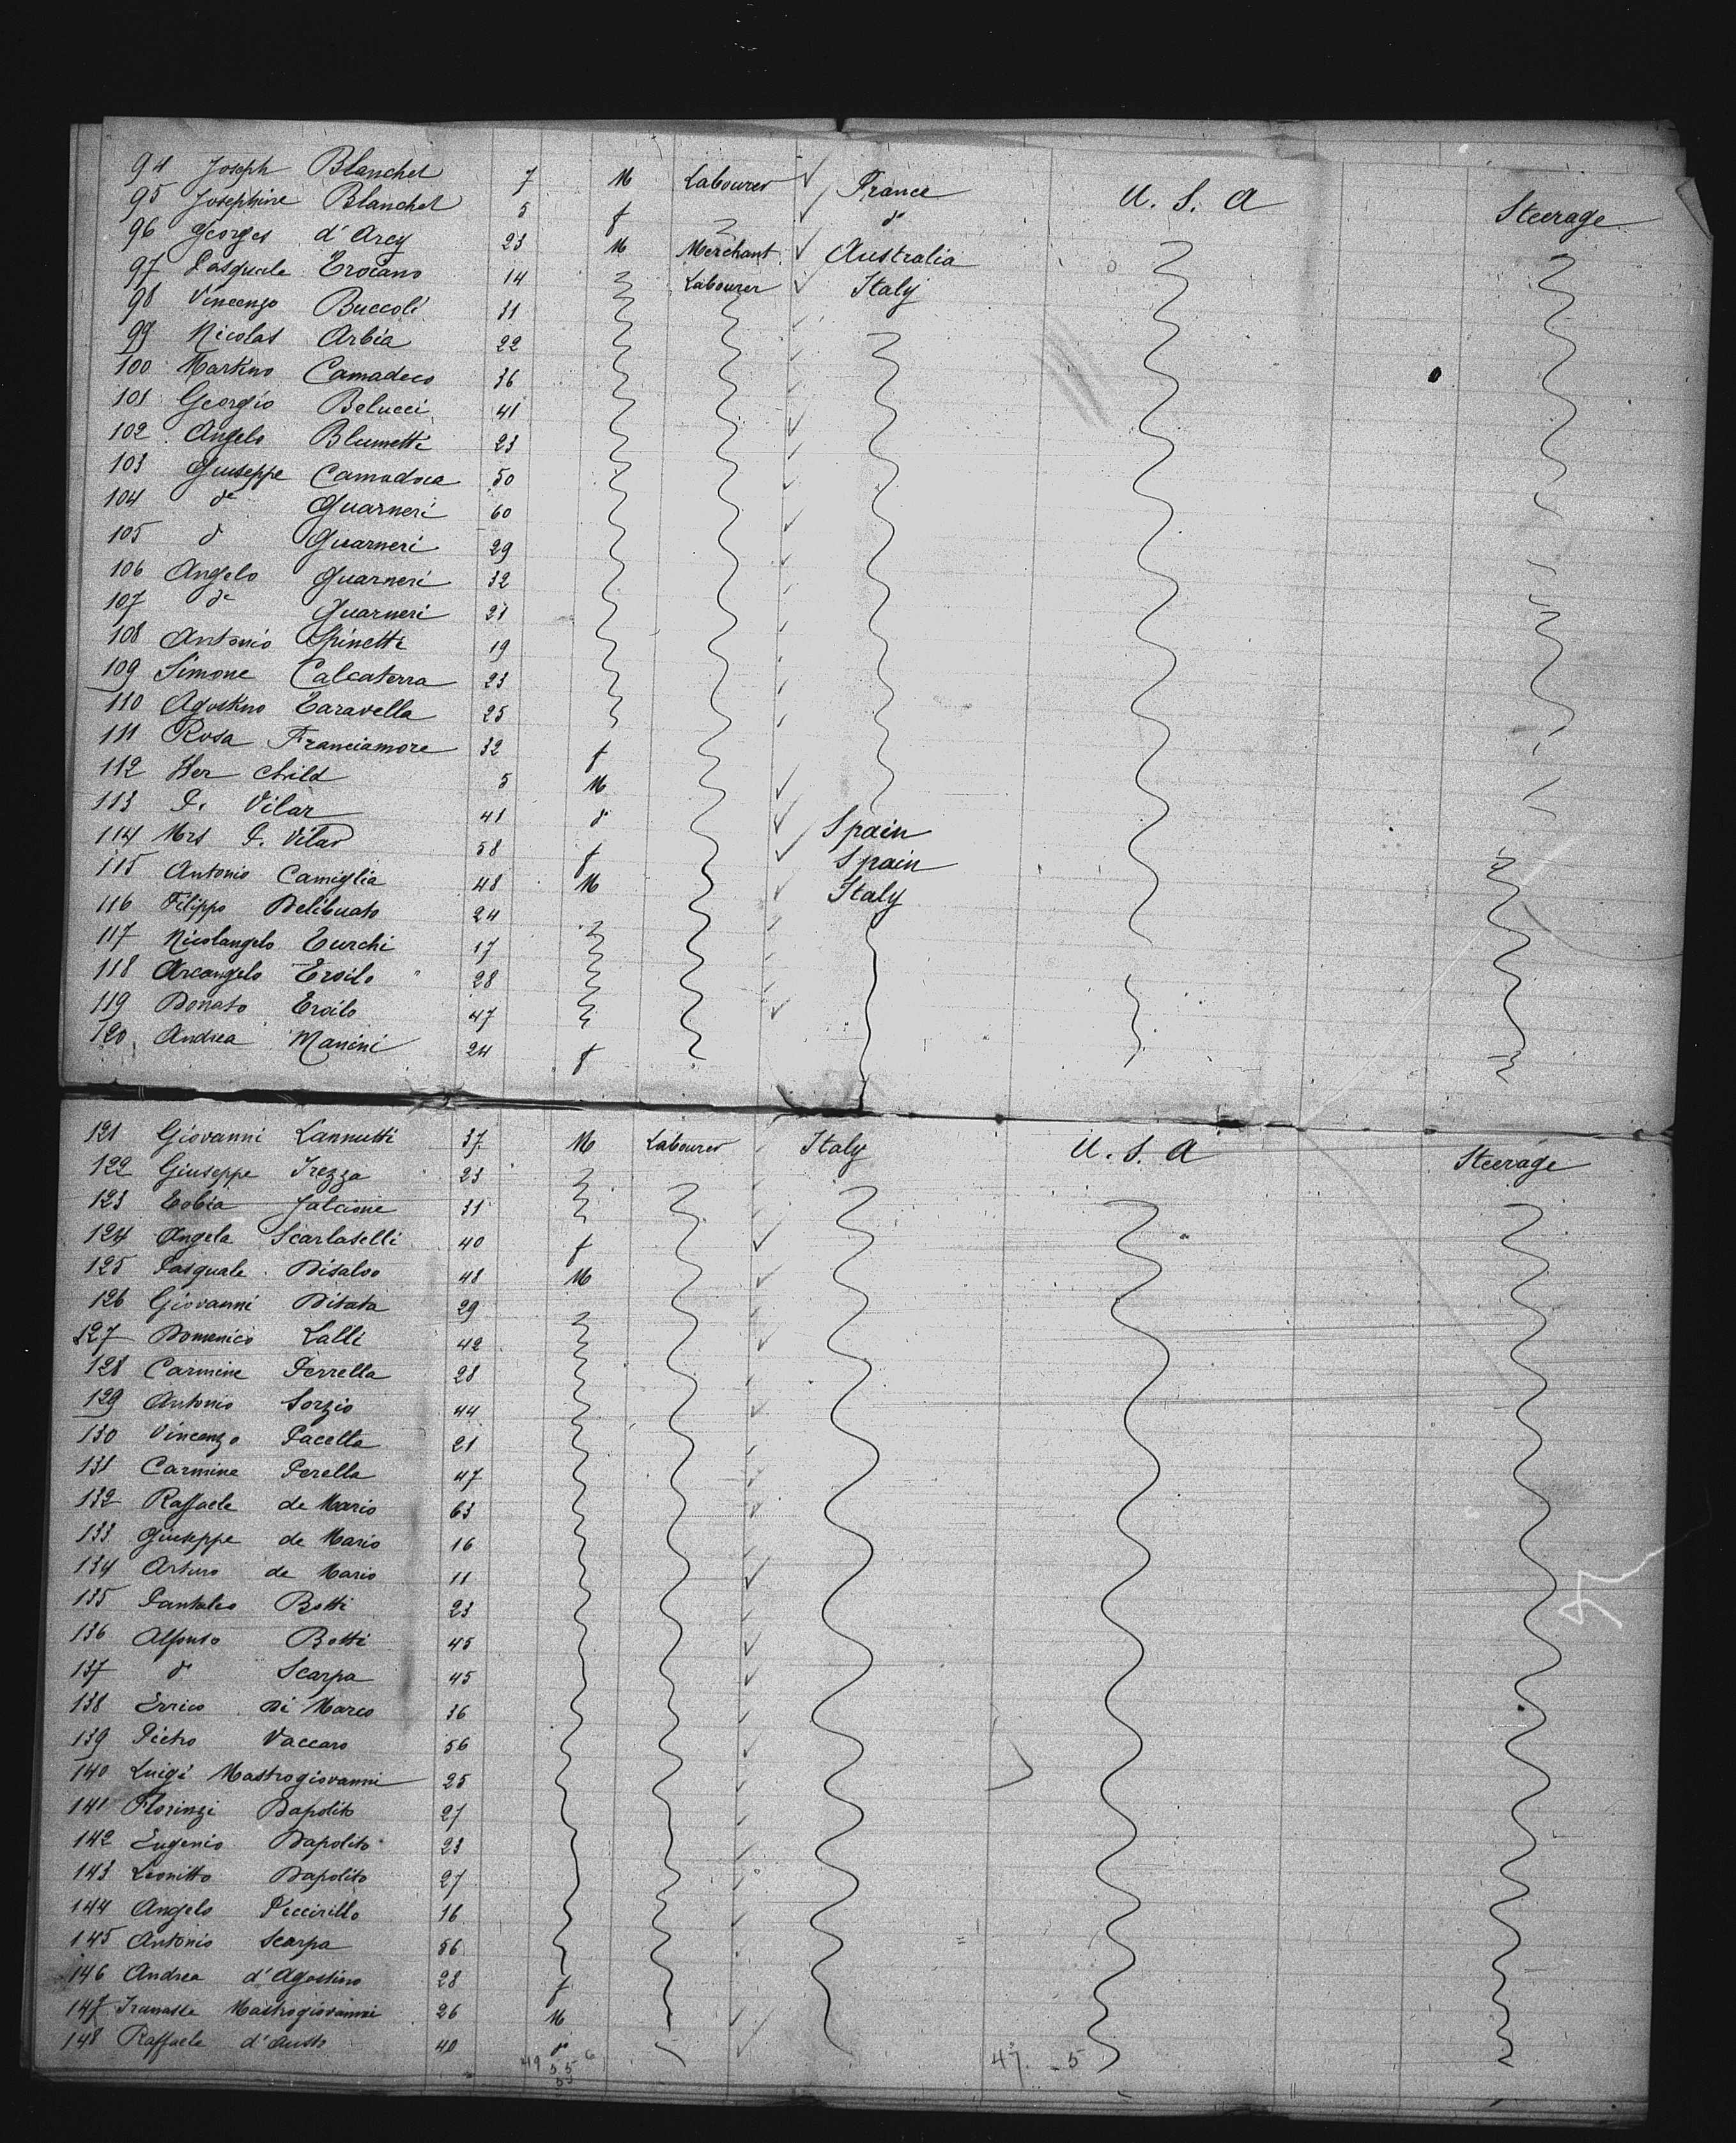 94 Joseph Blanchet 7 M Labourer ✓ France U. S. A Steerage
95 Josephine Blanchet 5 f ✓ do
96 Georges d'Arcy 23 M Merchant ✓ Australia
97 Pasquale Troiano 14 Labourer ✓ Italy
98 Vincenzo Buccoli 31
99 Nicolas Arbia 22
100 Martino Camadeco 36
101 Georgio Belucci 41
102 Angelo Blumetti 23
103 Giuseppe Camadoca 50
104 do Guarneri 60
105 do Guarneri 29
106 Angelo Guarneri 32
107 do Guarneri 21
108 Antonio Spinetti 19
109 Simone Calcaterra 23
110 Agostino Taravella 25
111 Rosa Franciamore 32 f
112 Her child 5 M
113 P. Vilar 41 do ✓ Spain
114 Mrs P. Vilar 58 f ✓ Spain
115 Antonio Camiglia 48 M Italy
116 Filippo Delibuato 24
117 Nicolangelo Turchi 17
118 Arcangelo Troilo 28
119 Donato Troilo 47
120 Andrea Manini 24 f
121 Giovanni Lannutti 37 M Labourer Italy U. S. A Steerage
122 Giuseppe Irezza 23
123 Tobia Falcione 31
124 Angela Scarlaselli 40 f
125 Pasquale Disalvo 48 M
126 Giovanni Ditata 29
127 Domenico Lalli 42
128 Carmine Perrella 28
129 Antonio Sorzio 44
130 Vincenzo Pacella 21
131 Carmine Perella 47
132 Raffaele de Mario 63
133 Giuseppe de Mario 16
134 Arturo de Mario 11
135 Pantaleo Botti 23
136 Alfonso Botti 45
137 do Scarpa 45
138 Errico Di Marco 36
139 Pietro Vaccaro 56
140 Luigi Mastrogiovanni 25
141 Florinzi Dapolito 27
142 Eugenio Dapolito 23
143 Leonitto Dapolito 27
144 Angelo Piccirillo 16
145 Antonio Scarpa 56
146 Andrea d'Agostino 28 f
147 Mastrogiovanni 26 M
148 Raffaele 40 do
47 - 5